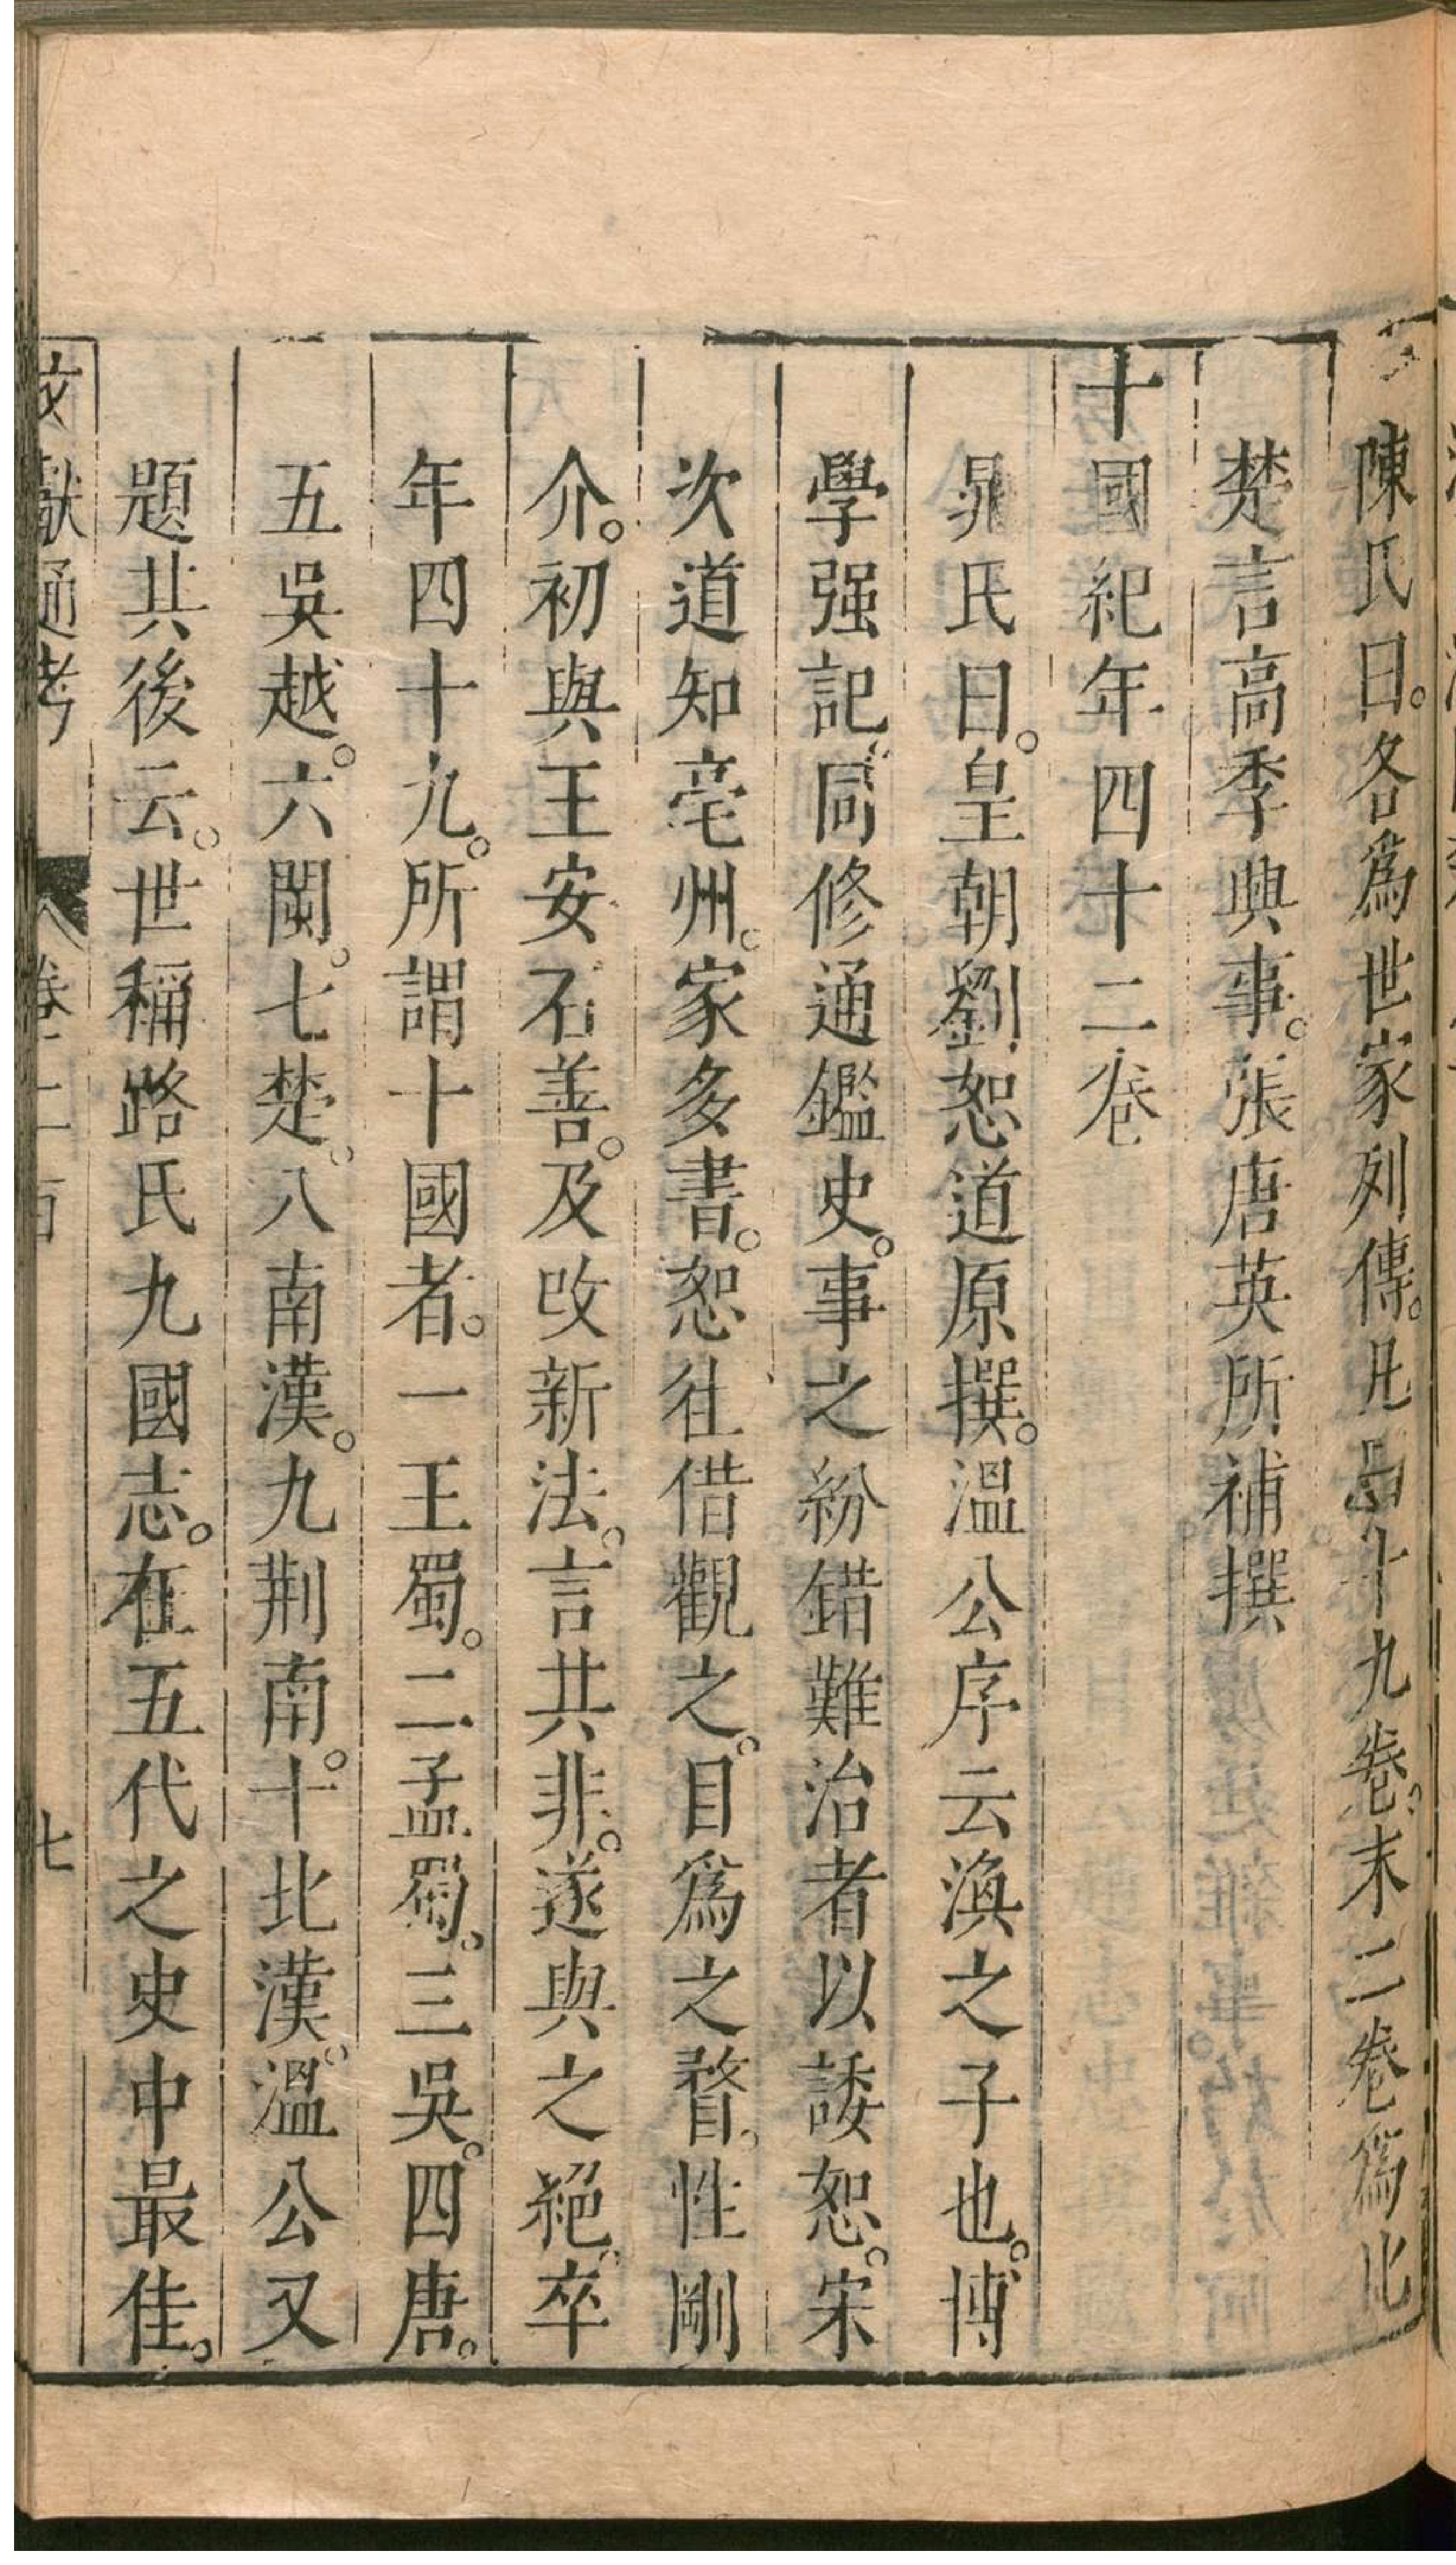 陳氏曰。各爲世家列傳。凡四十九卷。末二卷爲北
楚言高季興事。張唐英所補撰
十國紀年四十二卷
晁氏曰。皇朝劉恕道原撰。溫公序云渙之子也。博
學强記。同修通鑑史。事之紛錯難治者以諉恕。宋
次道知亳州。家多書。恕往借觀之。目爲之瞀。性剛
介。初與王安石善。及改新法。言共非。遂與之絕。卒
年四十九。所謂十國者。一王蜀。二孟蜀。三吳。四唐。
五吳越。六閩。七楚。八南漢。九荆南。十北漢。溫公又
題其後云。世稱路氏九國志。在五代之史中最佳。
文獻通考 卷二百 七